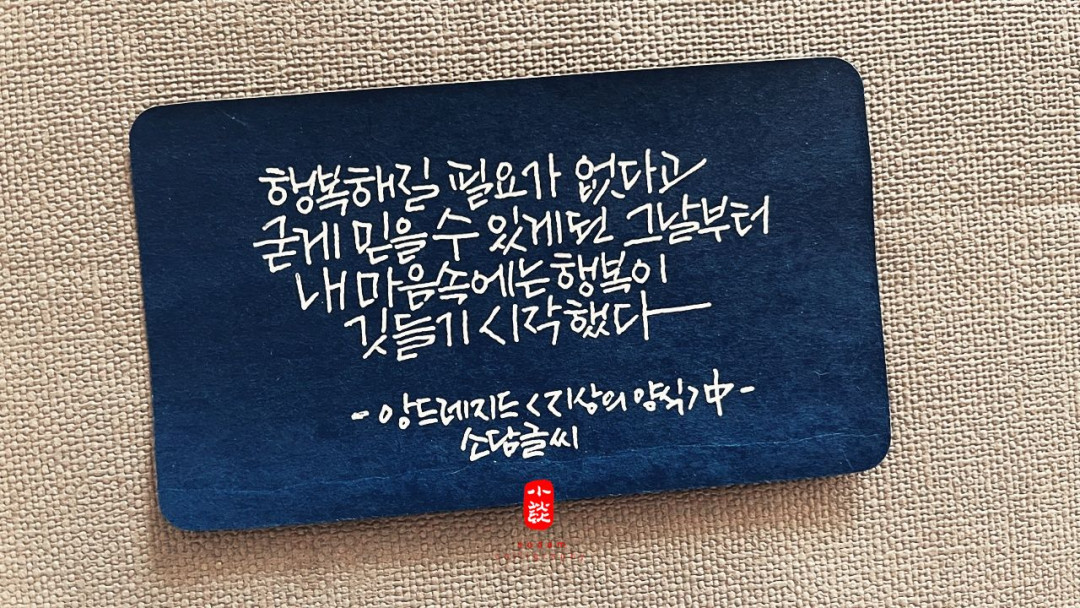 행복해질 필요가 없다고
굳게 믿을 수 있게된 그날부터
내 마음속에는 행복이
깃들기 시작했다
- 앙드레지드 <지상의 양식> 中 -
소담글씨
小談